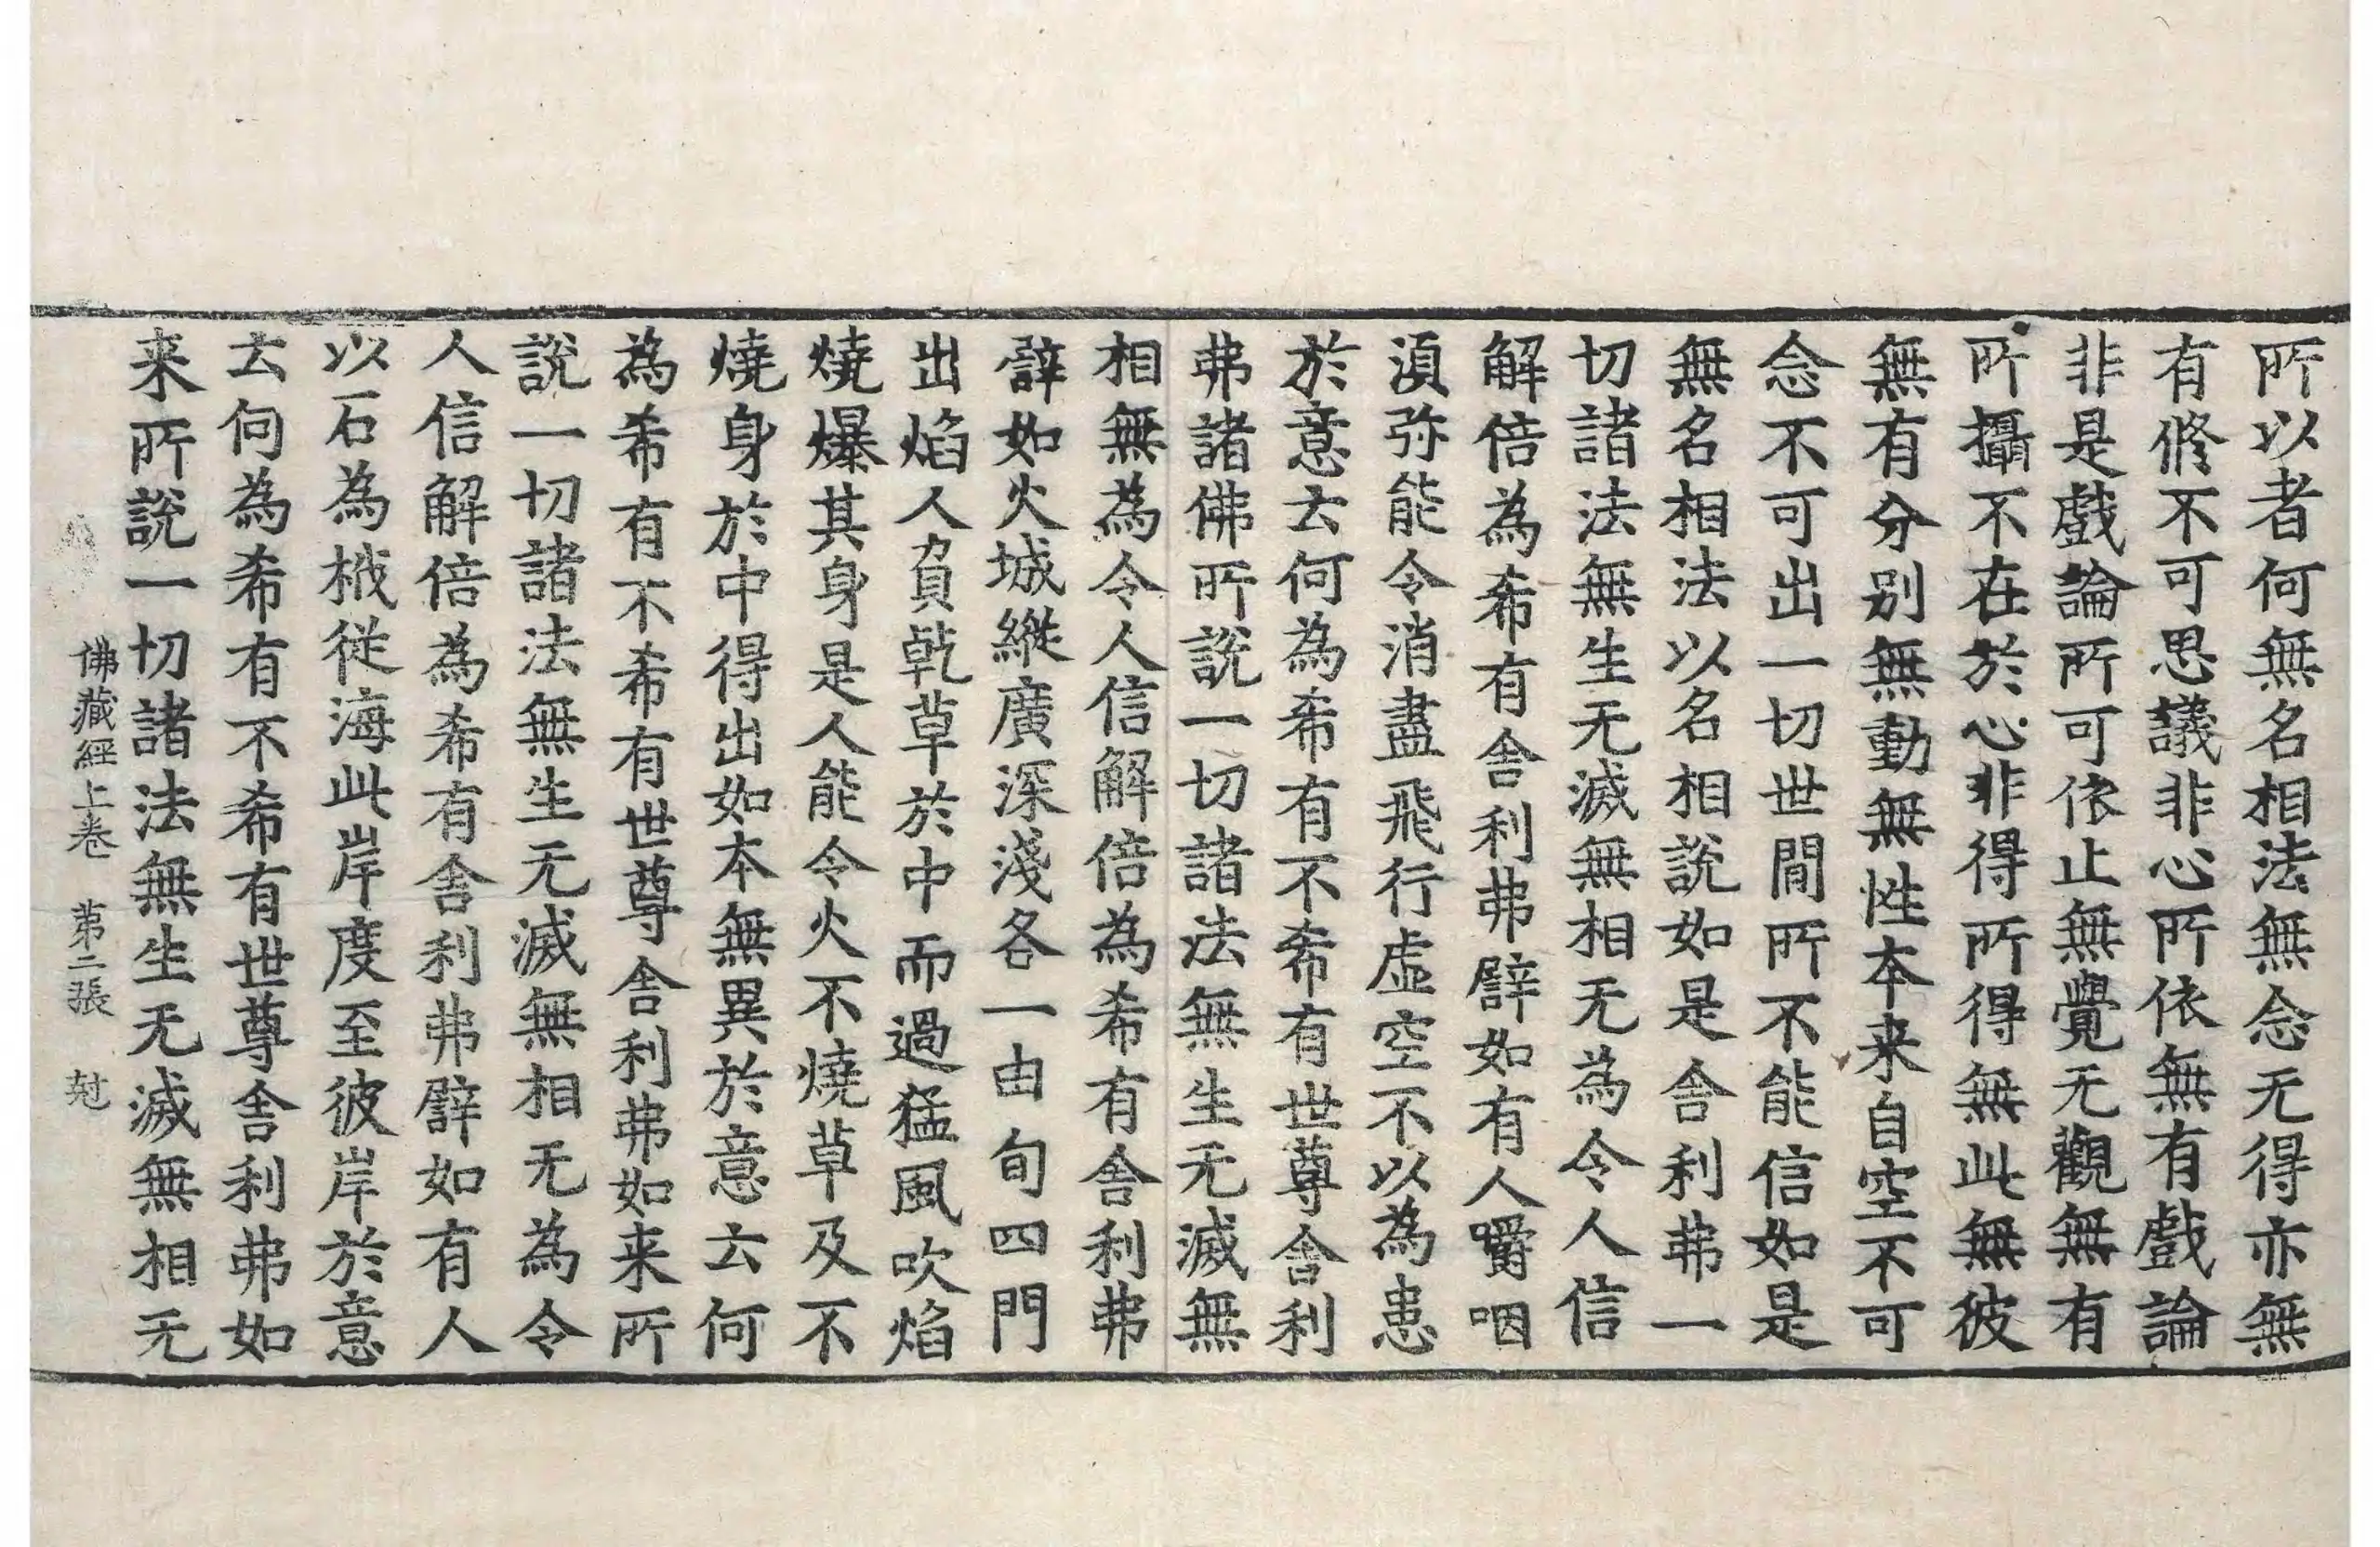 所以者何無名相法無念无得亦無
有修不可思議非心所依無有戲論
非是戲論所可依止無覺无觀無有
所攝不在於心非得所得無此無彼
無有分别無動無性本来自空不可
念不可出一切世間所不能信如是
無名相法以名相說如是舍利弗一
切諸法無生无滅無相无為令人信
解倍為希有舍利弗譬如有人嚼咽
湏弥能令消盡飛行虛空不以為患
於意云何為希有不希有世尊舍利
弗諸佛所說一切諸法無生无滅無
相無為令人信解倍為希有舍利弗
譬如火城縱廣深淺各一由旬四門
出焰人負乹草於中而過猛風吹焰
燒爆其身是人能令火不燒草及不
燒身於中得出如本無異於意云何
為希有不希有世尊舍利弗如来所
說一切諸法無生无滅無相无為令
人信解倍為希有舍利弗譬如有人
以石為栰從海此岸度至彼岸於意
云何為希有不希有世尊舍利弗如
来所說一切諸法無生无滅無相无
佛藏經上卷 第二張 尅